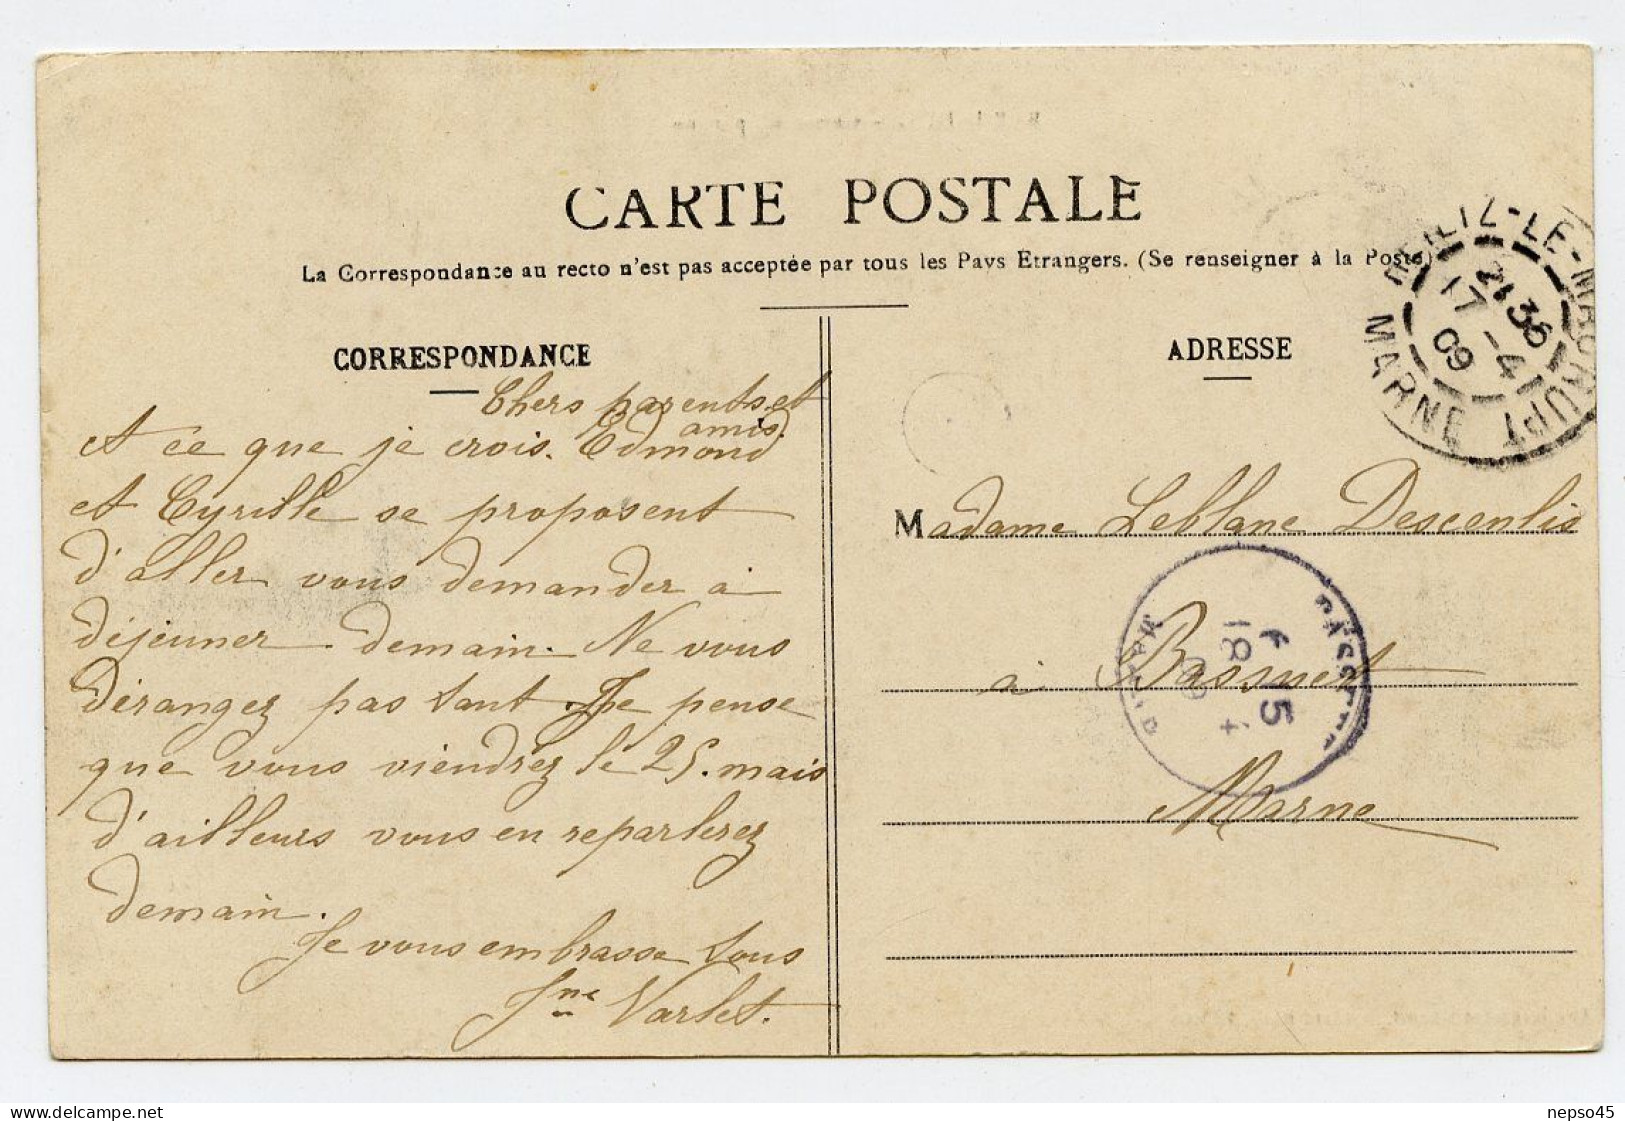 CARTE POSTALE
La Correspondance au recto n'est pas acceptée par tous les Pays Etrangers. (Se renseigner à la Poste)
CORRESPONDANCE
Chers parents et
amis.
et ce que je crois. Edmond
et Cyrille se proposent
d'aller vous demander à
déjeuner demain. Ne vous
dérangez pas tant. Je pense
que vous viendrez le 25. mais
d'ailleurs vous en reparlerez
demain.
Je vous embrasse tous
Jne Varlet.
ADRESSE
Madame Leblanc Descenlis
à Bassuet
Marne
HEILTZ-LE-MAURUPT
MARNE
21 35
17 - 4
09
18
15
4
09
delcampe.net
nepso45